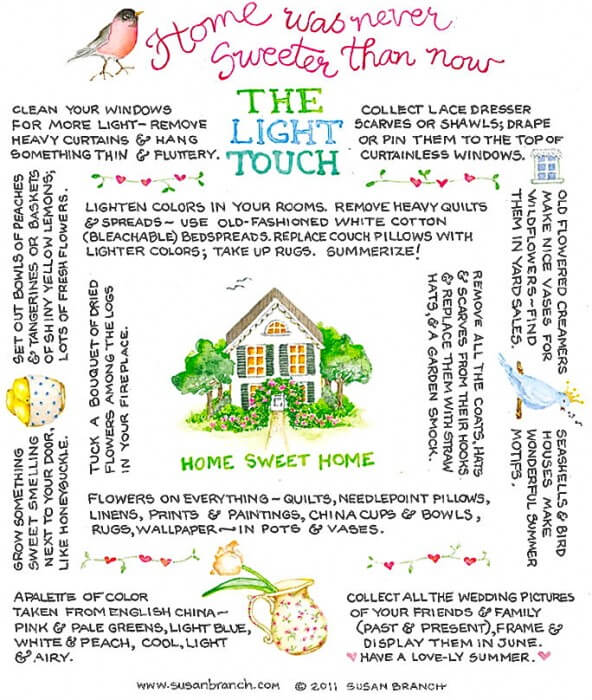 Home was never
Sweeter than now
THE
LIGHT
TOUCH
CLEAN YOUR WINDOWS
FOR MORE LIGHT~REMOVE
HEAVY CURTAINS & HANG
SOMETHING THIN & FLUTTERY.
COLLECT LACE DRESSER
SCARVES OR SHAWLS; DRAPE
OR PIN THEM TO THE TOP OF
CURTAINLESS WINDOWS.
LIGHTEN COLORS IN YOUR ROOMS. REMOVE HEAVY QUILTS
& SPREADS~ USE OLD-FASHIONED WHITE COTTON
(BLEACHABLE) BEDSPREADS. REPLACE COUCH PILLOWS WITH
LIGHTER COLORS; TAKE UP RUGS. SUMMERIZE!
SET OUT BOWLS OF PEACHES
& TANGERINES OR BASKETS
OF SHINY YELLOW LEMONS;
LOTS OF FRESH FLOWERS.
TUCK A BOUQUET OF DRIED
FLOWERS AMONG THE LOGS
IN YOUR FIREPLACE.
REMOVE ALL THE COATS, HATS
& SCARVES FROM THEIR HOOKS
& REPLACE THEM WITH STRAW
HATS, & A GARDEN SMOCK.
OLD FLOWERED CREAMERS
MAKE NICE VASES FOR
WILDFLOWERS~FIND
THEM IN YARD SALES.
HOME SWEET HOME
GROW SOMETHING
SWEET SMELLING
NEXT TO YOUR DOOR,
LIKE HONEYSUCKLE.
SEASHELLS & BIRD
HOUSES MAKE
WONDERFUL SUMMER
MOTIFS.
FLOWERS ON EVERYTHING~QUILTS, NEEDLEPOINT PILLOWS,
LINENS, PRINTS & PAINTINGS, CHINA CUPS & BOWLS,
RUGS, WALLPAPER~IN POTS & VASES.
A PALETTE OF COLOR
TAKEN FROM ENGLISH CHINA~
PINK & PALE GREENS, LIGHT BLUE,
WHITE & PEACH, COOL, LIGHT
& AIRY.
COLLECT ALL THE WEDDING PICTURES
OF YOUR FRIENDS & FAMILY
(PAST & PRESENT), FRAME &
DISPLAY THEM IN JUNE.
♥ HAVE A LOVE-LY SUMMER. ♥
www.susanbranch.com © 2011 SUSAN BRANCH